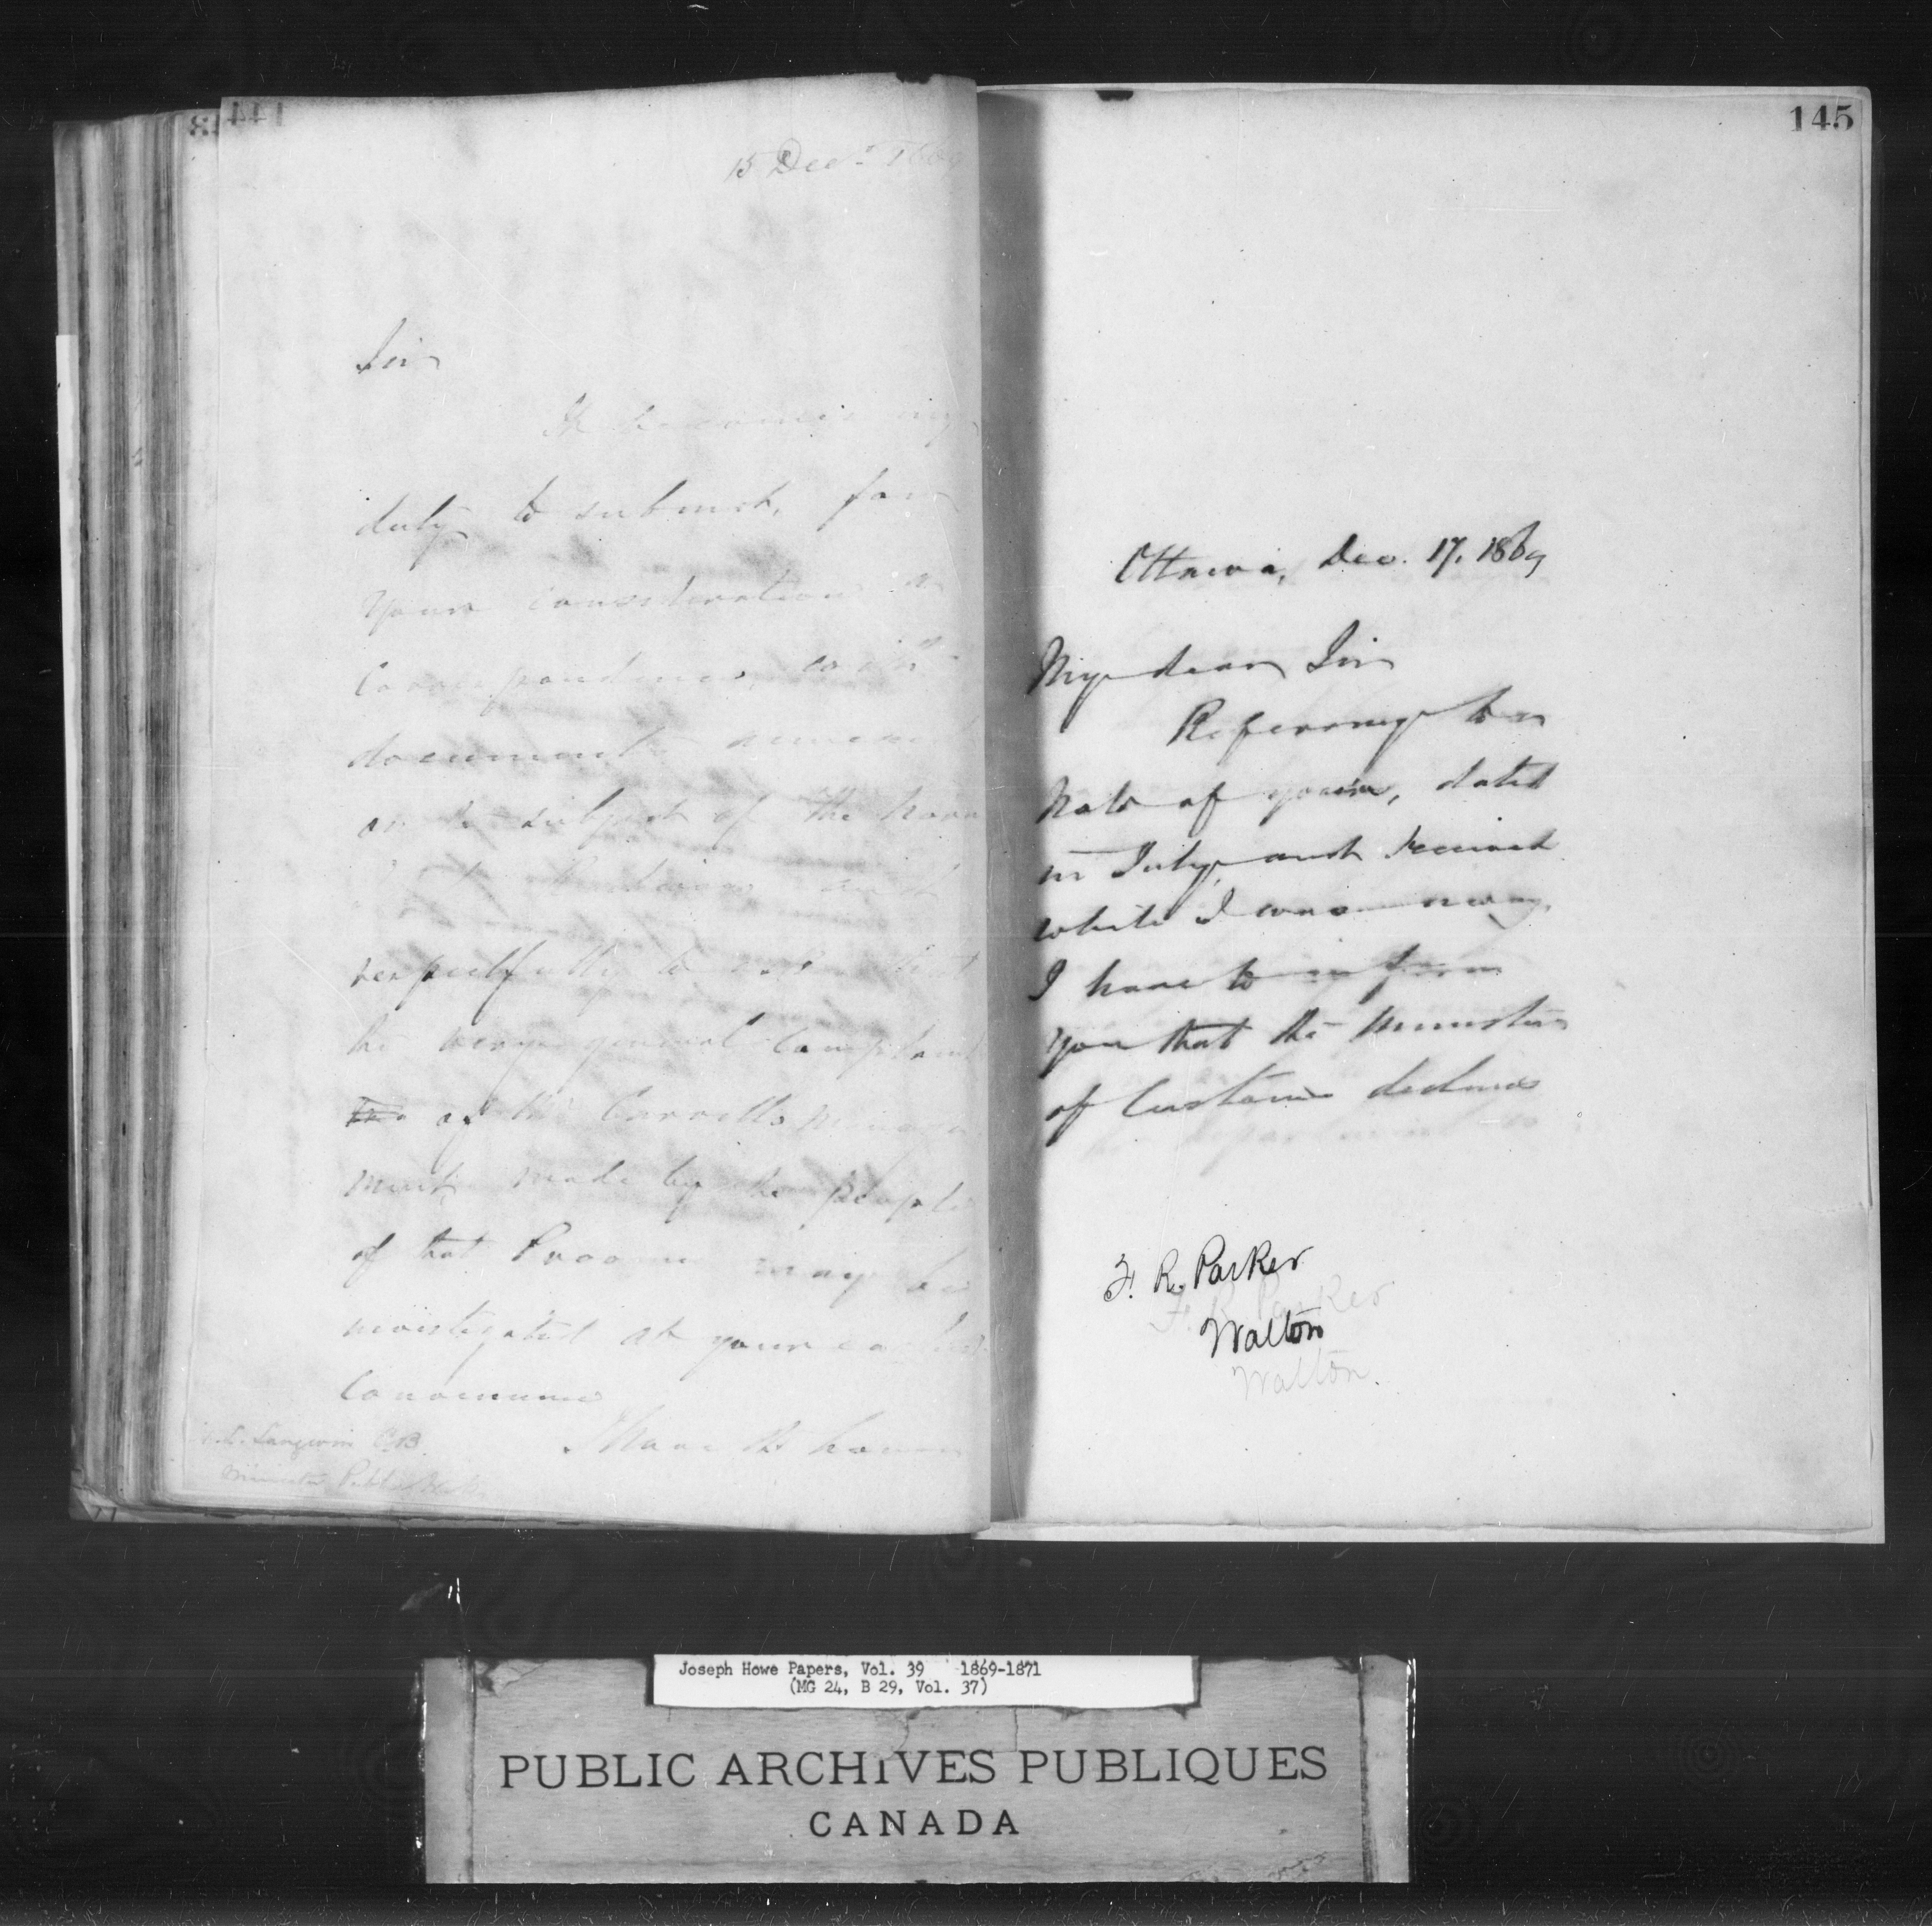 144
15 Decr 1869
Sir
It becomes my
duty to submit, for
your consideration a
Correspondence, with
documents annexed
on the subject of the
respectfully to ask that
the very general Complaint
of the
ment, made by the people
of that Province may be
investigated at your earliest
Convenience
I Have the honor
Langevin CB
Minister Public Works
145
Ottawa, Dec. 17. 1869
My dear Sir
Referring to a
Note of yours, dated
in July, and received
while I was away,
I have to inform
you that the Minister
of Customs declines
F. R. Parker
F. R. Parker
Walton
Walton.
Joseph Howe Papers, Vol. 39 1869-1871
(MG 24, B 29, Vol. 37)
PUBLIC ARCHIVES PUBLIQUES
CANADA